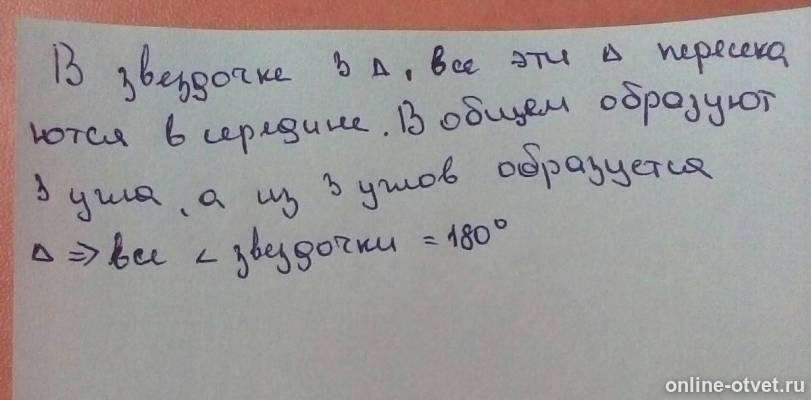 В звездочке 3 Δ, все эти Δ пересека
ются в середине. В общем образуют
3 угла, а из 3 углов образуется
Δ ⇒ все < звездочки = 180°
online-otvet.ru